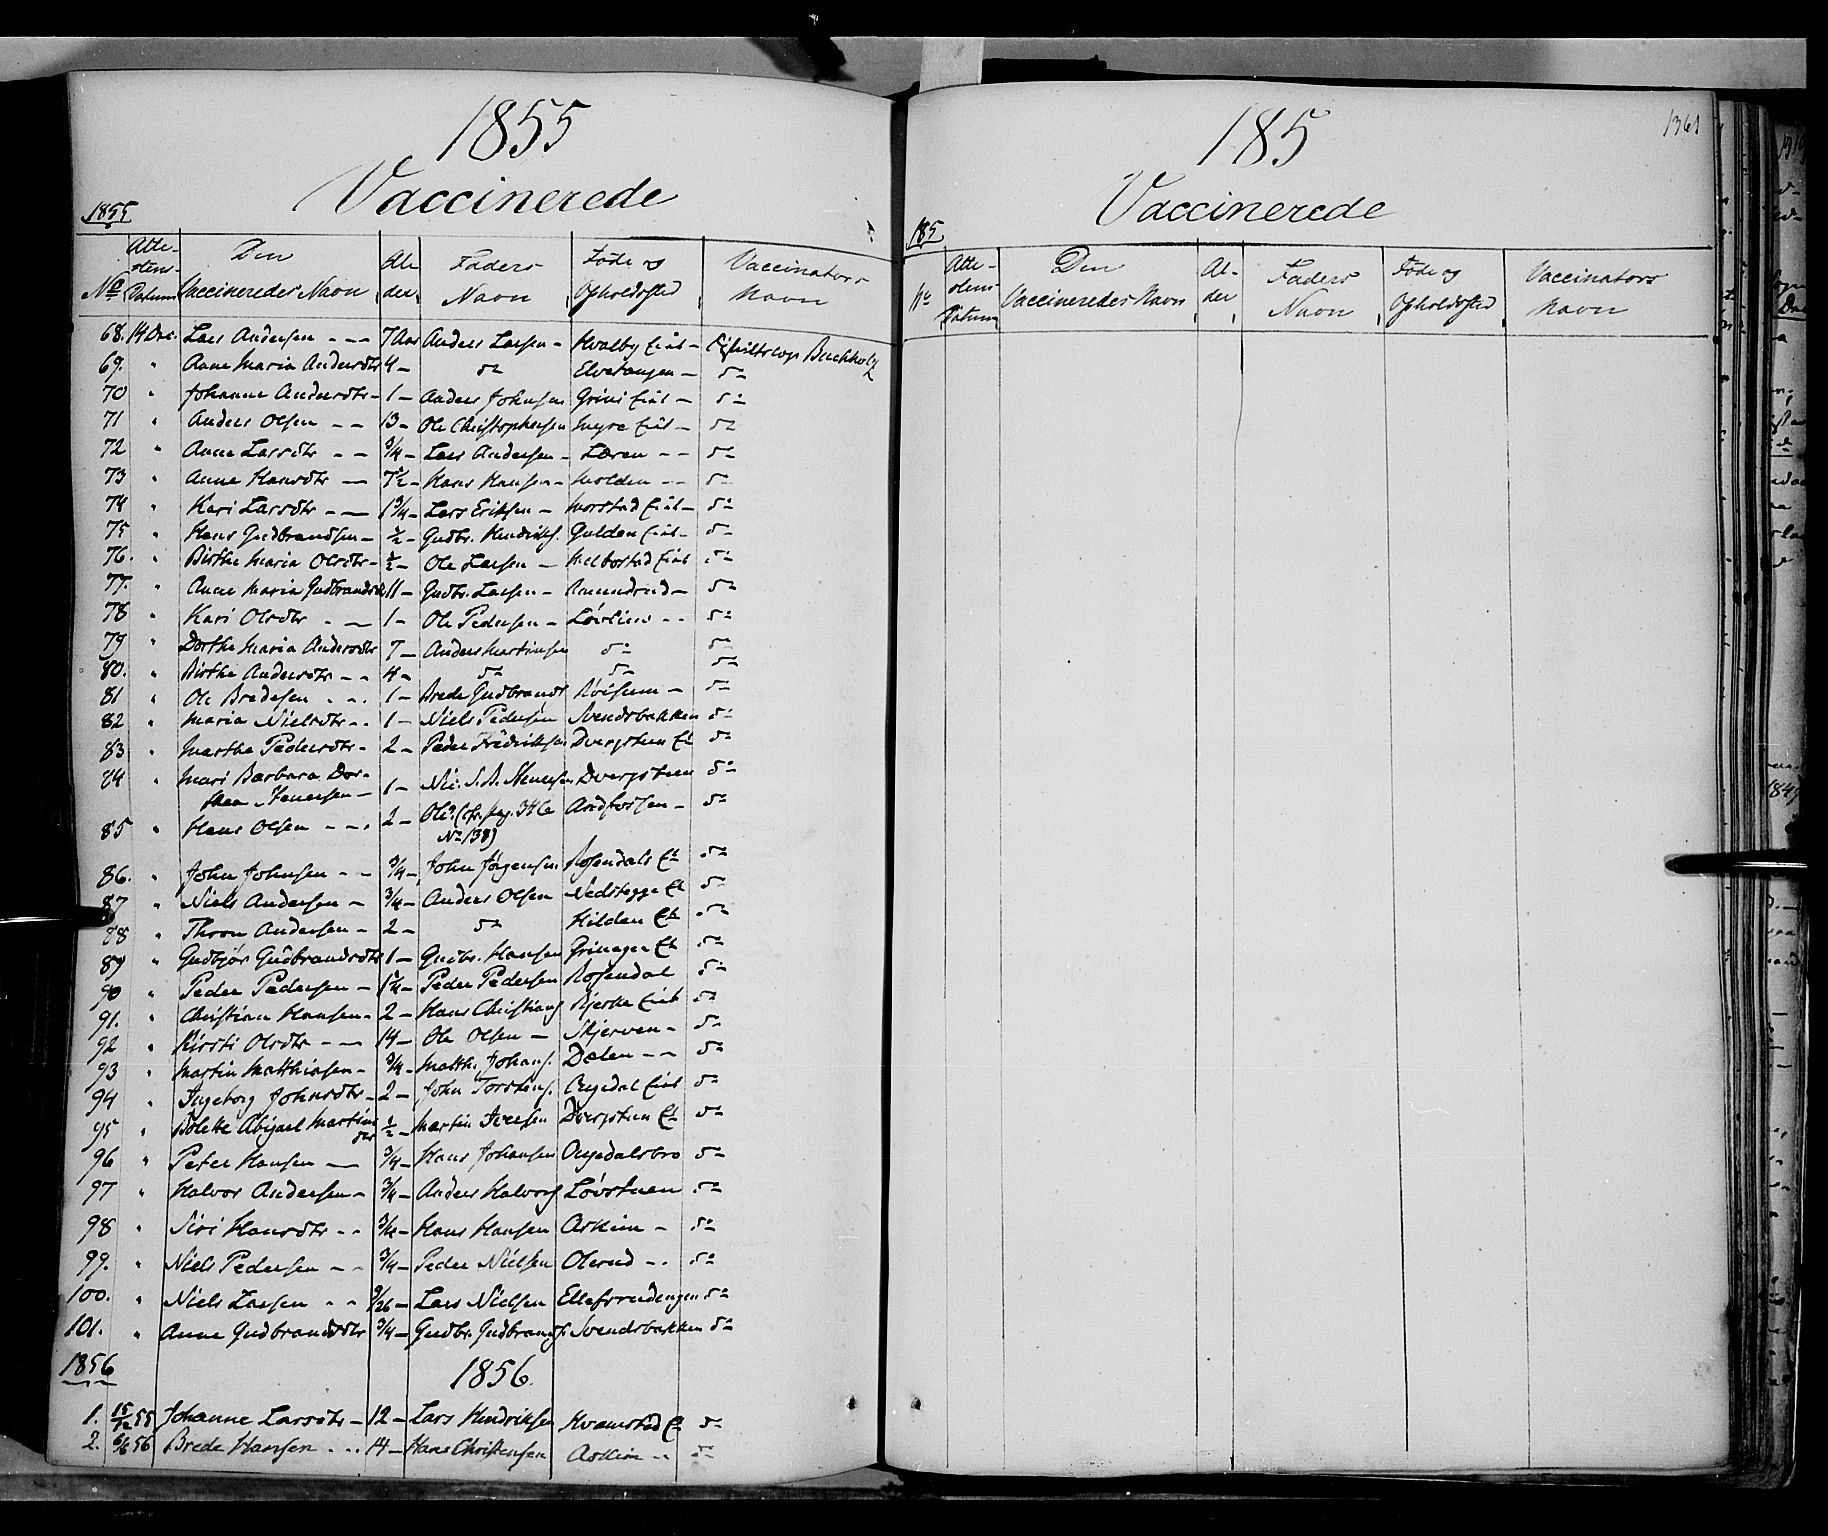 1855
Vaccinerede
1855
No Atte-stens-Datum Den Vaccineredes Navn Al-der Faders Navn Føde og Opholdssted Vaccinators Navn
68. 14 Dec. Lars Andersen - - - 7 Aar Anders Larsen - Hvalby Eiet - Buchholz
69. " Anne Maria Andersdtr 4 - do Elvetangen - do
70 " Johanne Andersdtr - 1 - Anders Johnsen Grini Eiet - do
71 " Anders Olsen - - 13 - Ole Christophersen Eiet - do
72 " Anne Larsdtr - - 3/4 - Lars Andersen - Læren - - do
73 " Anne Hansdtr - 7 1/2 - Hans Hansen - Molden - - do
74 " Kari Larsdtr - - 1 3/4 - Lars Eriksen - Morstad Eiet - do
75 " Hans Gudbrandsen - 1/2 - Gudbr. Hendriks. Gulden Eiet - do
76. " Birthe Maria Olsdtr - 1/2 - Ole Larsen - Melbostad Eiet do
77. " Anne Maria Gudbrandsdtr 11 - Gudbr. Larsen - Amundrud - do
78 " Kari Olsdtr - - 1 - Ole Pedersen - Løvlien - - do
79 " Dorthe Maria Andersdtr 7 - Anders Martinsen do do
80. " Birthe Andersdtr - - 4 - do do do
81 " Ole Bredesen - - . 1 - Brede Gudbrands Røisum - do
82 " Maria Nielsdtr - . 1 - Niels Pedersen Svendsbakken do
83 " Marthe Pedersdtr - 2 - Peder Fredriksen Dvergsteen Et do
84 " Mari Barbara Dor-
thea Stenersen - 1 - Nic. S. A. Stenersen Dvergsteen do
85 " Hans Olsen - - . 2 - Ole (cfr. pag. 346 Andfossen - do
No 138)
86. " John Johnsen - - 3/4 - John Jørgensen Rosendals Et do
87 " Niels Andersen - 3/4 - Anders Olsen Nedstegge Et do
88 " Thron Andersen - 2 - do Hilden Et do
89 " Gudbjør Gudbrandsdtr 1 - Gudbr. Hansen Grinager Et do
90 " Peder Pedersen - 1 1/4 - Peder Pedersen Rosendal do
91. " Christian Hansen - 2 - Hans Christians Bjerke Eiet do
92 " Kirsti Olsdtr - - 14 - Ole Olsen - Skjerven - do
93 " Martin Matthiasen - 3/4 - Matth. Johans. Dælen - - do
94 " Ingeborg Johnsdtr - 2 - John Torstens. Augedal Eiet do
95 " Bolette Abigael Martins
dtr 1/2 - Martin Iversen Dvergsteen Et do
96 " Peter Hansen - 3/4 - Hans Johansen Augedalsbro do
97 " Halvor Andersen - 3/4 - Anders Halvors Løvstuen do
98 " Siri Hansdtr - - 3/4 - Hans Hansen Askim - do
99. " Niels Pedersen - - 3/4 - Peder Nielsen Olerud - . do
100. " Niels Larsen - - 9/26 - Lars Nielsen Ellefsrudengen do
101. " Anne Gudbrandsdtr 3/4 - Gudbr. Gudbrands. Svendsbakken do
1856 1856.
1. 15/12 55 Johanne Larsdtr - 12 - Lars Hendriksen Kvamstad Et do
2. 6/6 56 Brede Hansen - . . 14 - Hans Christensen Askim - - do
1361
185
Vaccinerede
185
No Atte-stens-Datum Den Vaccineredes Navn Al-der Faders Navn Føde og Opholdssted Vaccinators Navn